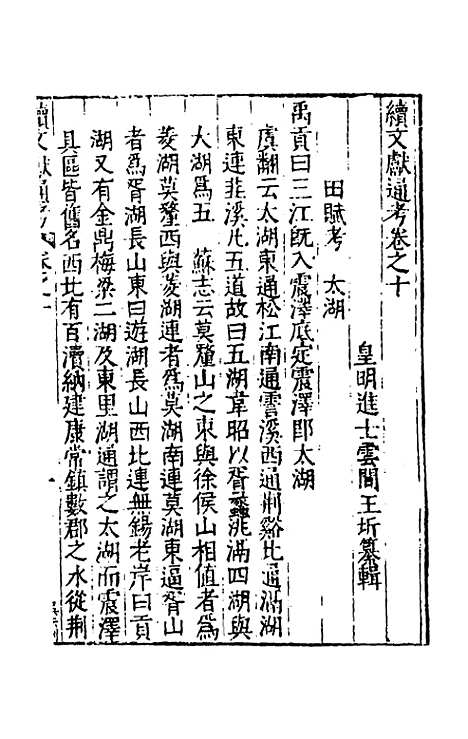 續文獻通考卷之十
皇明進士雲間王圻纂輯
田賦考　太湖
禹貢曰三江旣入震澤底定震澤卽太湖
虞翻云太湖東通松江南通霅溪西通荆谿北通滆湖
東連韭溪凡五道故曰五湖韋昭以胥蠡洮滆四湖與
大湖爲五　蘇志云莫釐山之東與徐侯山相値者爲
菱湖莫釐西與菱湖連者爲莫湖南連莫湖東逼胥山
者爲胥湖長山東曰遊湖長山西北連無錫老岸曰貢
湖又有金鼎梅梁二湖及東里湖通謂之太湖而震澤
具區皆舊名西北有百瀆納建康常鎮數郡之水從荆
續文獻通考